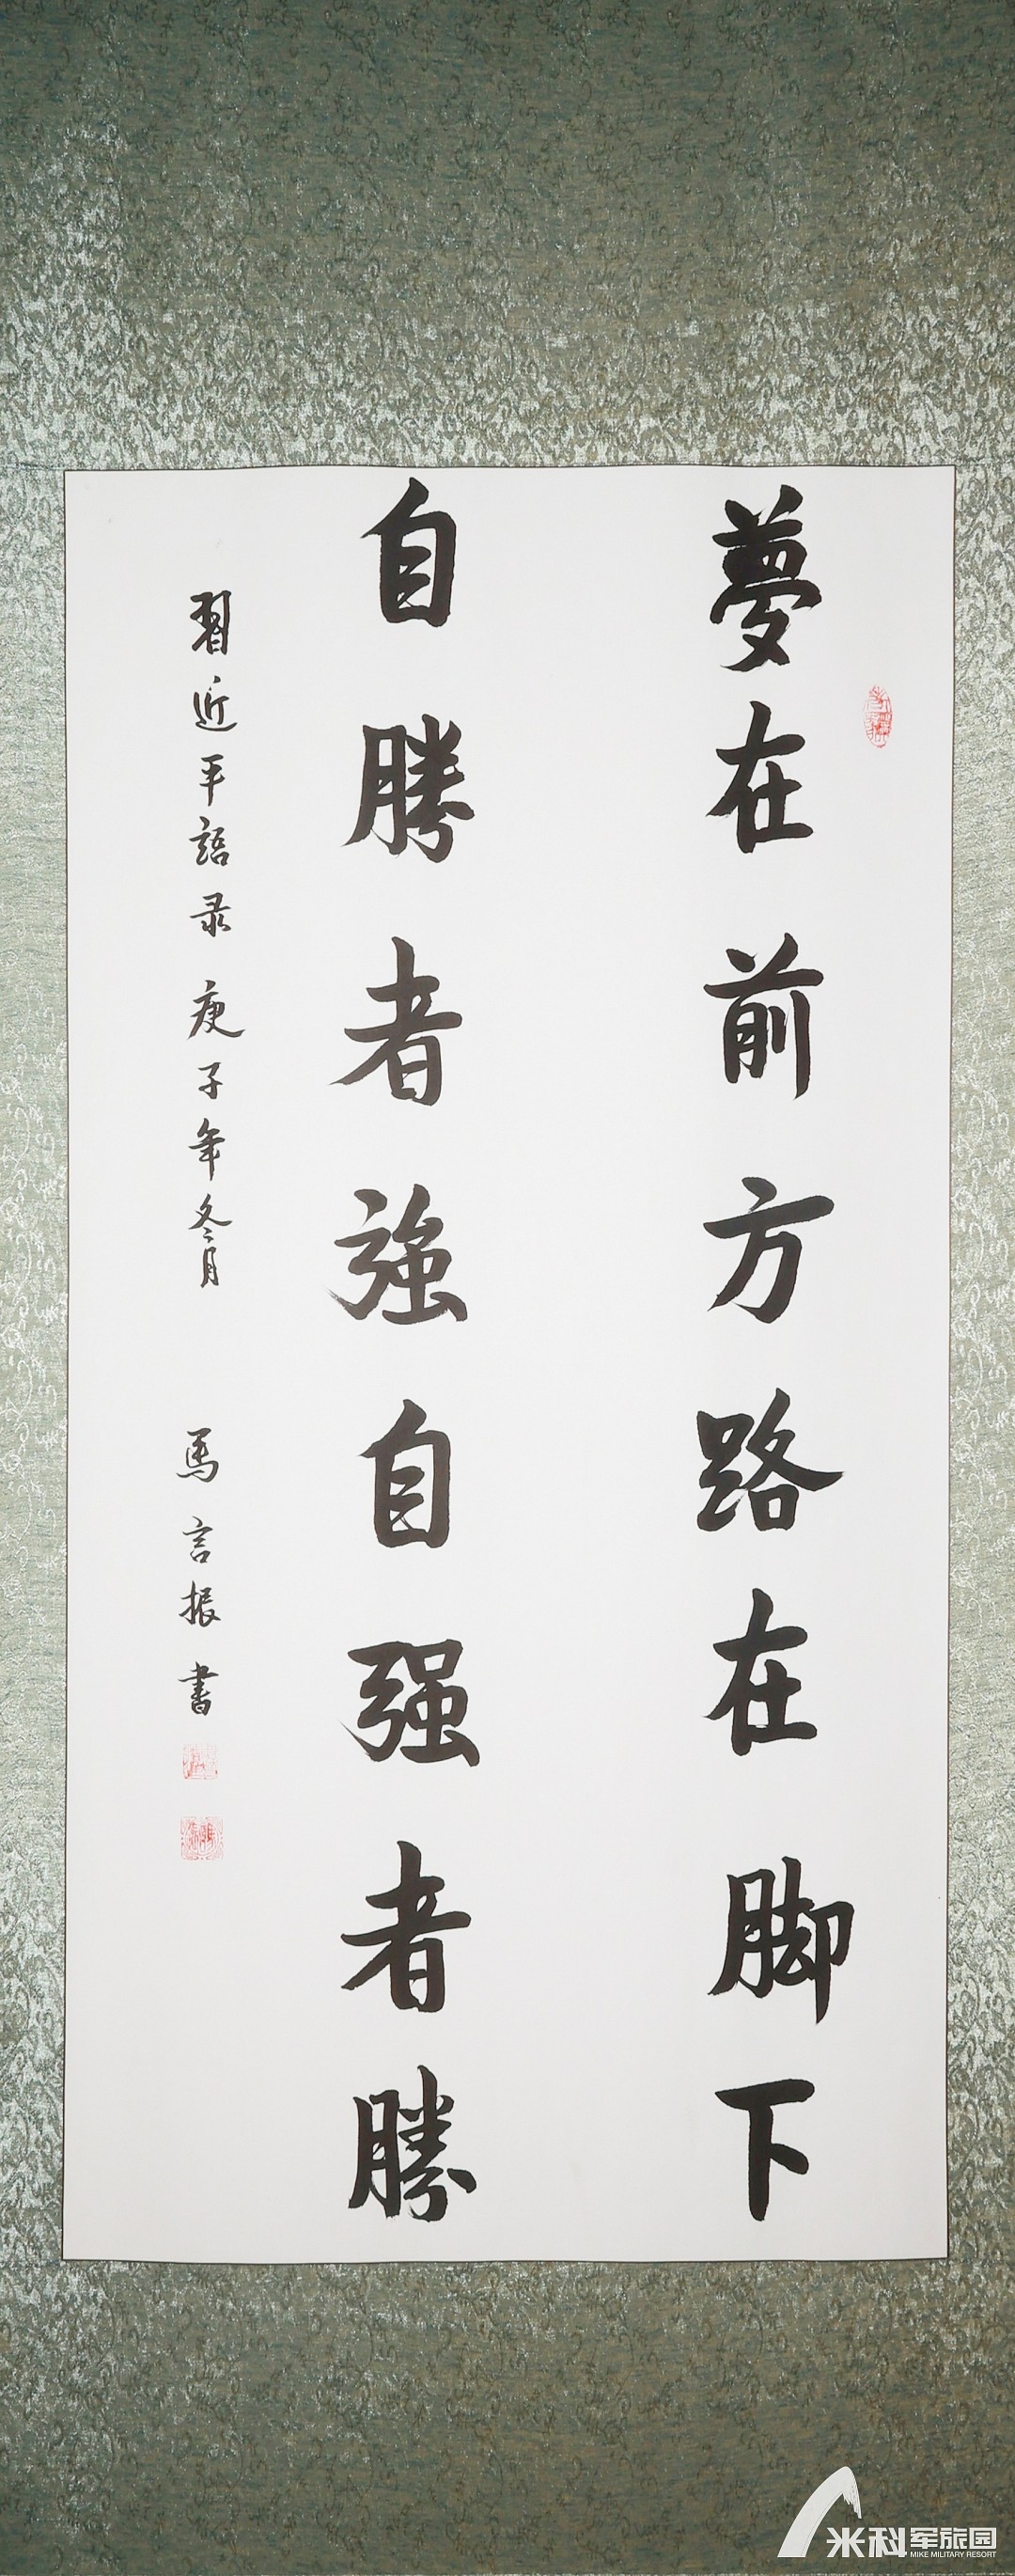 夢在前方路在脚下
自勝者強自强者勝
習近平語录 庚子年冬月 馬言振書
米科军旅园
MIKE MILITARY RESORT